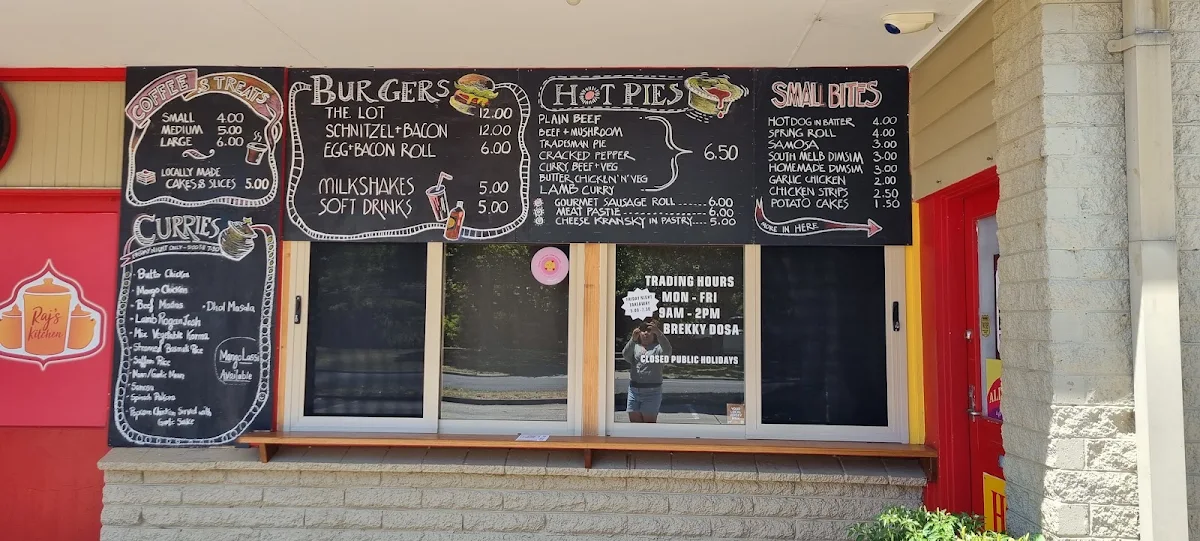 COFFEE & TREATS
SMALL 4.00
MEDIUM 5.00
LARGE 6.00
LOCALLY MADE
CAKES & SLICES 5.00
BURGERS
THE LOT 12.00
SCHNITZEL + BACON 12.00
EGG + BACON ROLL 6.00
MILKSHAKES 5.00
SOFT DRINKS 5.00
HOT PIES
PLAIN BEEF
BEEF + MUSHROOM
TRADESMAN PIE
CRACKED PEPPER
CURRY, BEEF + VEG
BUTTER CHICKEN 'N' VEG
LAMB CURRY
6.50
GOURMET SAUSAGE ROLL ....... 6.00
MEAT PASTIE ........ 6.00
CHEESE KRANSKY IN PASTRY.... 5.00
SMALL BITES
HOTDOG IN BATTER 4.00
SPRING ROLL 4.00
SAMOSA 3.00
SOUTH MELB DIMSIM 3.00
HOMEMADE DIMSIM 3.00
GARLIC CHICKEN 2.00
CHICKEN STRIPS 2.50
POTATO CAKES 1.50
MORE IN HERE
CURRIES
FRIDAY NIGHT ONLY
- Butter Chicken
- Mango Chicken
- Beef Madras
- Dhal Masala
- Lamb Rogan Josh
- Mix Vegetable Korma
- Steamed Basmati Rice
- Saffron Rice
- Naan/Garlic Naan
- Samosa
- Spinach Pakora
- Popcorn Chicken Served with
Garlic Sauce
Mango Lassi
Available
Raj's
Kitchen
TRADING HOURS
MON - FRI
9AM - 2PM
BREKKY DOSA
CLOSED PUBLIC HOLIDAYS
FRIDAY NIGHT
TAKEAWAY